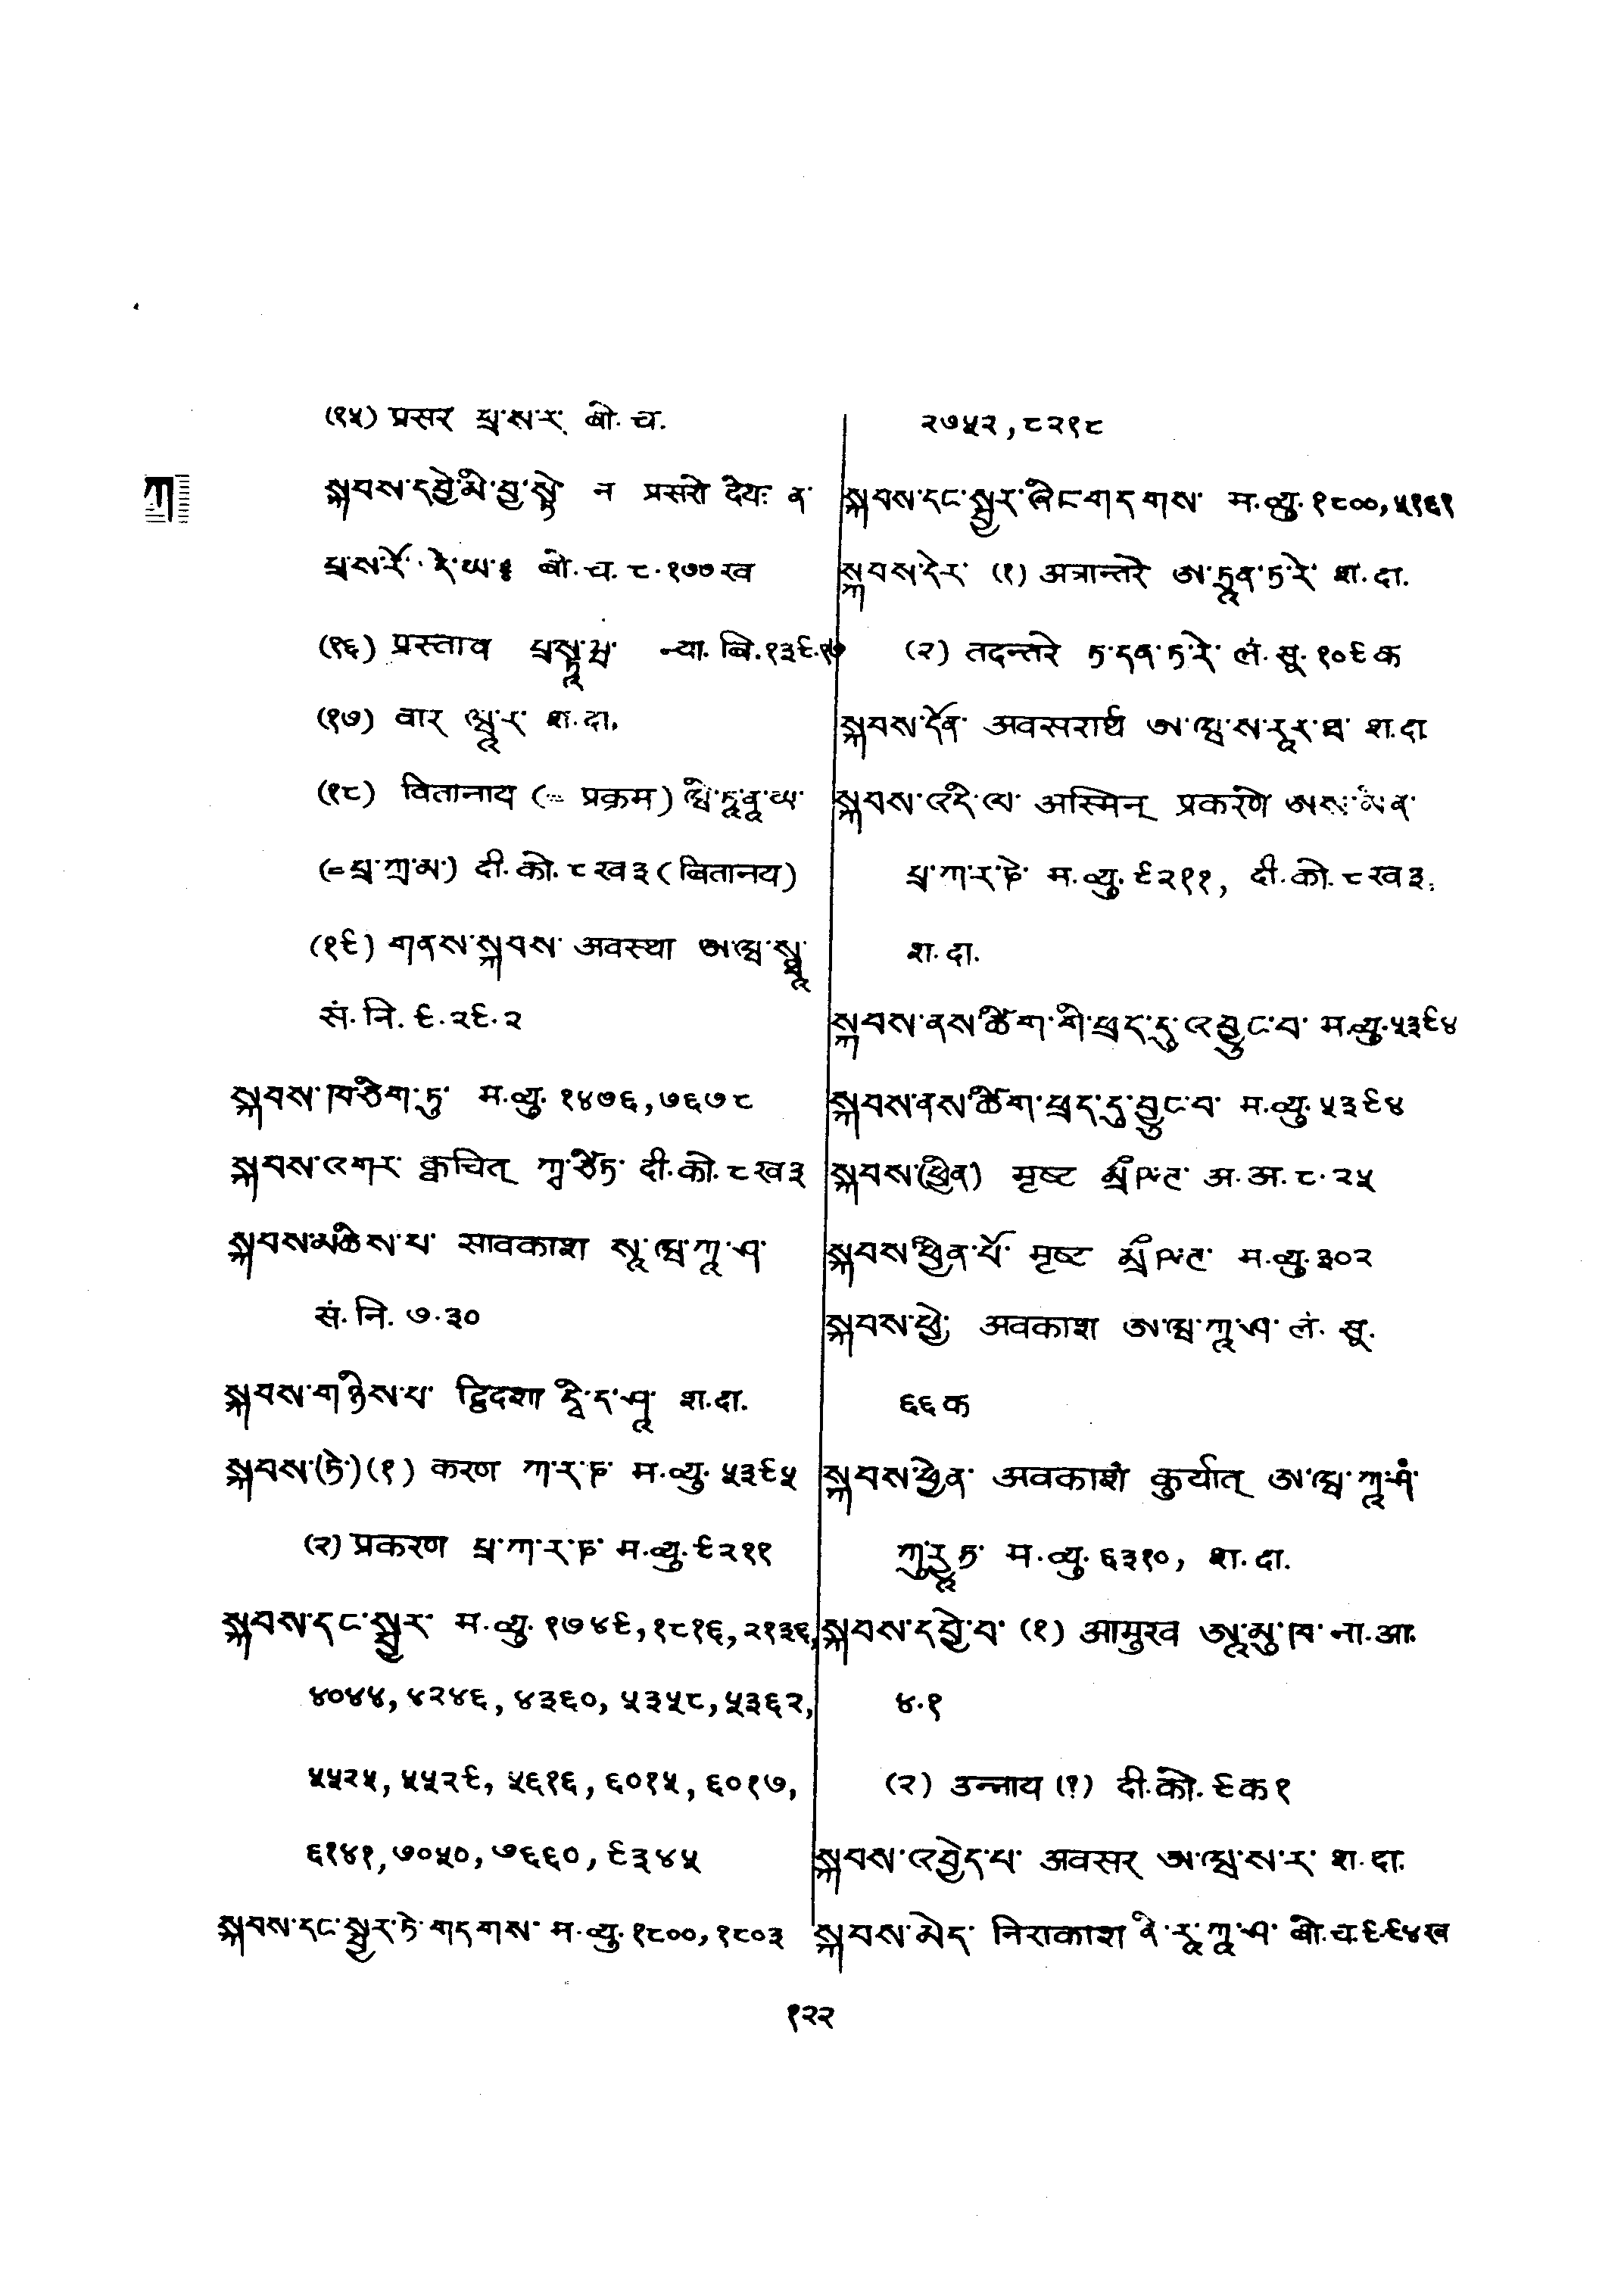 (१५) प्रसर པྲ་ས་ར་ बो. च.
ཀ
སྐབས་དབྱེ་མི་བྱ་སྟེ न प्रसरो देयः ན་
པྲ་ས་རོ་དེ་ཡ་ཿ बो. च. ८.१७७ ख
(१६) प्रस्ताव པྲ་སྟཱ་ཝ་ न्या. बि. १३६.१७
(१७) वार ཝཱ་ར་ श. दा.
(१८) वितानाय (= प्रक्रम) ཝི་ཏཱ་ནཱ་ཡ་
(= པྲ་ཀྲ་མ་) दी. को. ८ ख ३ (वितानय)
(१९) གནས་སྐབས་ अवस्था ཨ་ཝ་སྠཱ་
सं. नि. ९.२९.२
སྐབས་ཁ་ཅིག་ཏུ་ म. व्यु. १४७६, ७६७८
སྐབས་འགར་ क्वचित् ཀྭ་ཅིཏ་ दी. को. ८ ख ३
སྐབས་མཆིས་པ་ सावकाश སཱ་ཝ་ཀཱ་ཤ་
सं. नि. ७.३०
སྐབས་གཉིས་པ་ द्विदशा དྭི་ད་ཤཱ་ श. दा.
སྐབས་(ཏེ་) (१) करण ཀ་ར་ཎ་ म. व्यु. ५३९५
(२) प्रकरण པྲ་ཀ་ར་ཎ་ म. व्यु. ९२११
སྐབས་དང་སྦྱར་ म. व्यु. १७४९, १८१६, २१३६,
४०४४, ४२४६, ४३६०, ५३५८, ५३६२,
५५२५, ५५२९, ५६१६, ६०१५, ६०१७,
६१४१, ७०५०, ७६६०, ९३४५
སྐབས་དང་སྦྱར་ཏེ་གདགས་ म. व्यु. १८००, १८०३
२७५२, ८२१८
སྐབས་དང་སྦྱར་ཞིང་གདགས་ म. व्यु. १८००, ५१६१
སྐབས་དེར་ (१) अत्रान्तरे ཨ་ཏྲཱན་ཏ་རེ་ श. दा.
(२) तदन्तरे ཏ་དན་ཏ་རེ་ लं. सू. १०९ क
སྐབས་དོན་ अवसरार्थ ཨ་ཝ་ས་རཱར་ཐ་ श. दा
སྐབས་འདི་ལ་ अस्मिन् प्रकरणे ཨས་མིན་
པྲ་ཀ་ར་ཎེ་ म. व्यु. ९२११, दी. को. ८ ख ३,
श. दा.
སྐབས་ནས་ཚིག་གི་ཕྲད་དུ་འབྱུང་བ་ म. व्यु. ५३९४
སྐབས་ནས་ཚིག་ཕྲད་དུ་བྱུང་བ་ म. व्यु. ५३९४
སྐབས་(ཕྱིན) मृष्ट མྲྀཥྚ་ अ. अ. ८.२५
སྐབས་ཕྱིན་པོ་ मृष्ट མྲྀཥྚ་ म. व्यु. ३०२
སྐབས་ཕྱེ་ अवकाश ཨ་ཝ་ཀཱ་ཤ་ लं. सू.
६६ क
སྐབས་ཕྱེན་ अवकाशं कुर्यात् ཨ་ཝ་ཀཱ་ཤཾ་
ཀུ་རྱཱཏ་ म. व्यु. ६३१०, श. दा.
སྐབས་དབྱེ་བ་ (१) आमुख ཨཱ་མུ་ཁ་ ना. आ.
४.१
(२) उन्नाय (?) दी. को. ९ क १
སྐབས་འབྱེད་པ་ अवसर ཨ་ཝ་ས་ར་ श. दा.
སྐབས་མེད་ निराकाश ནི་རཱ་ཀཱ་ཤ་ बो. च. ९.९४ ख
१२२